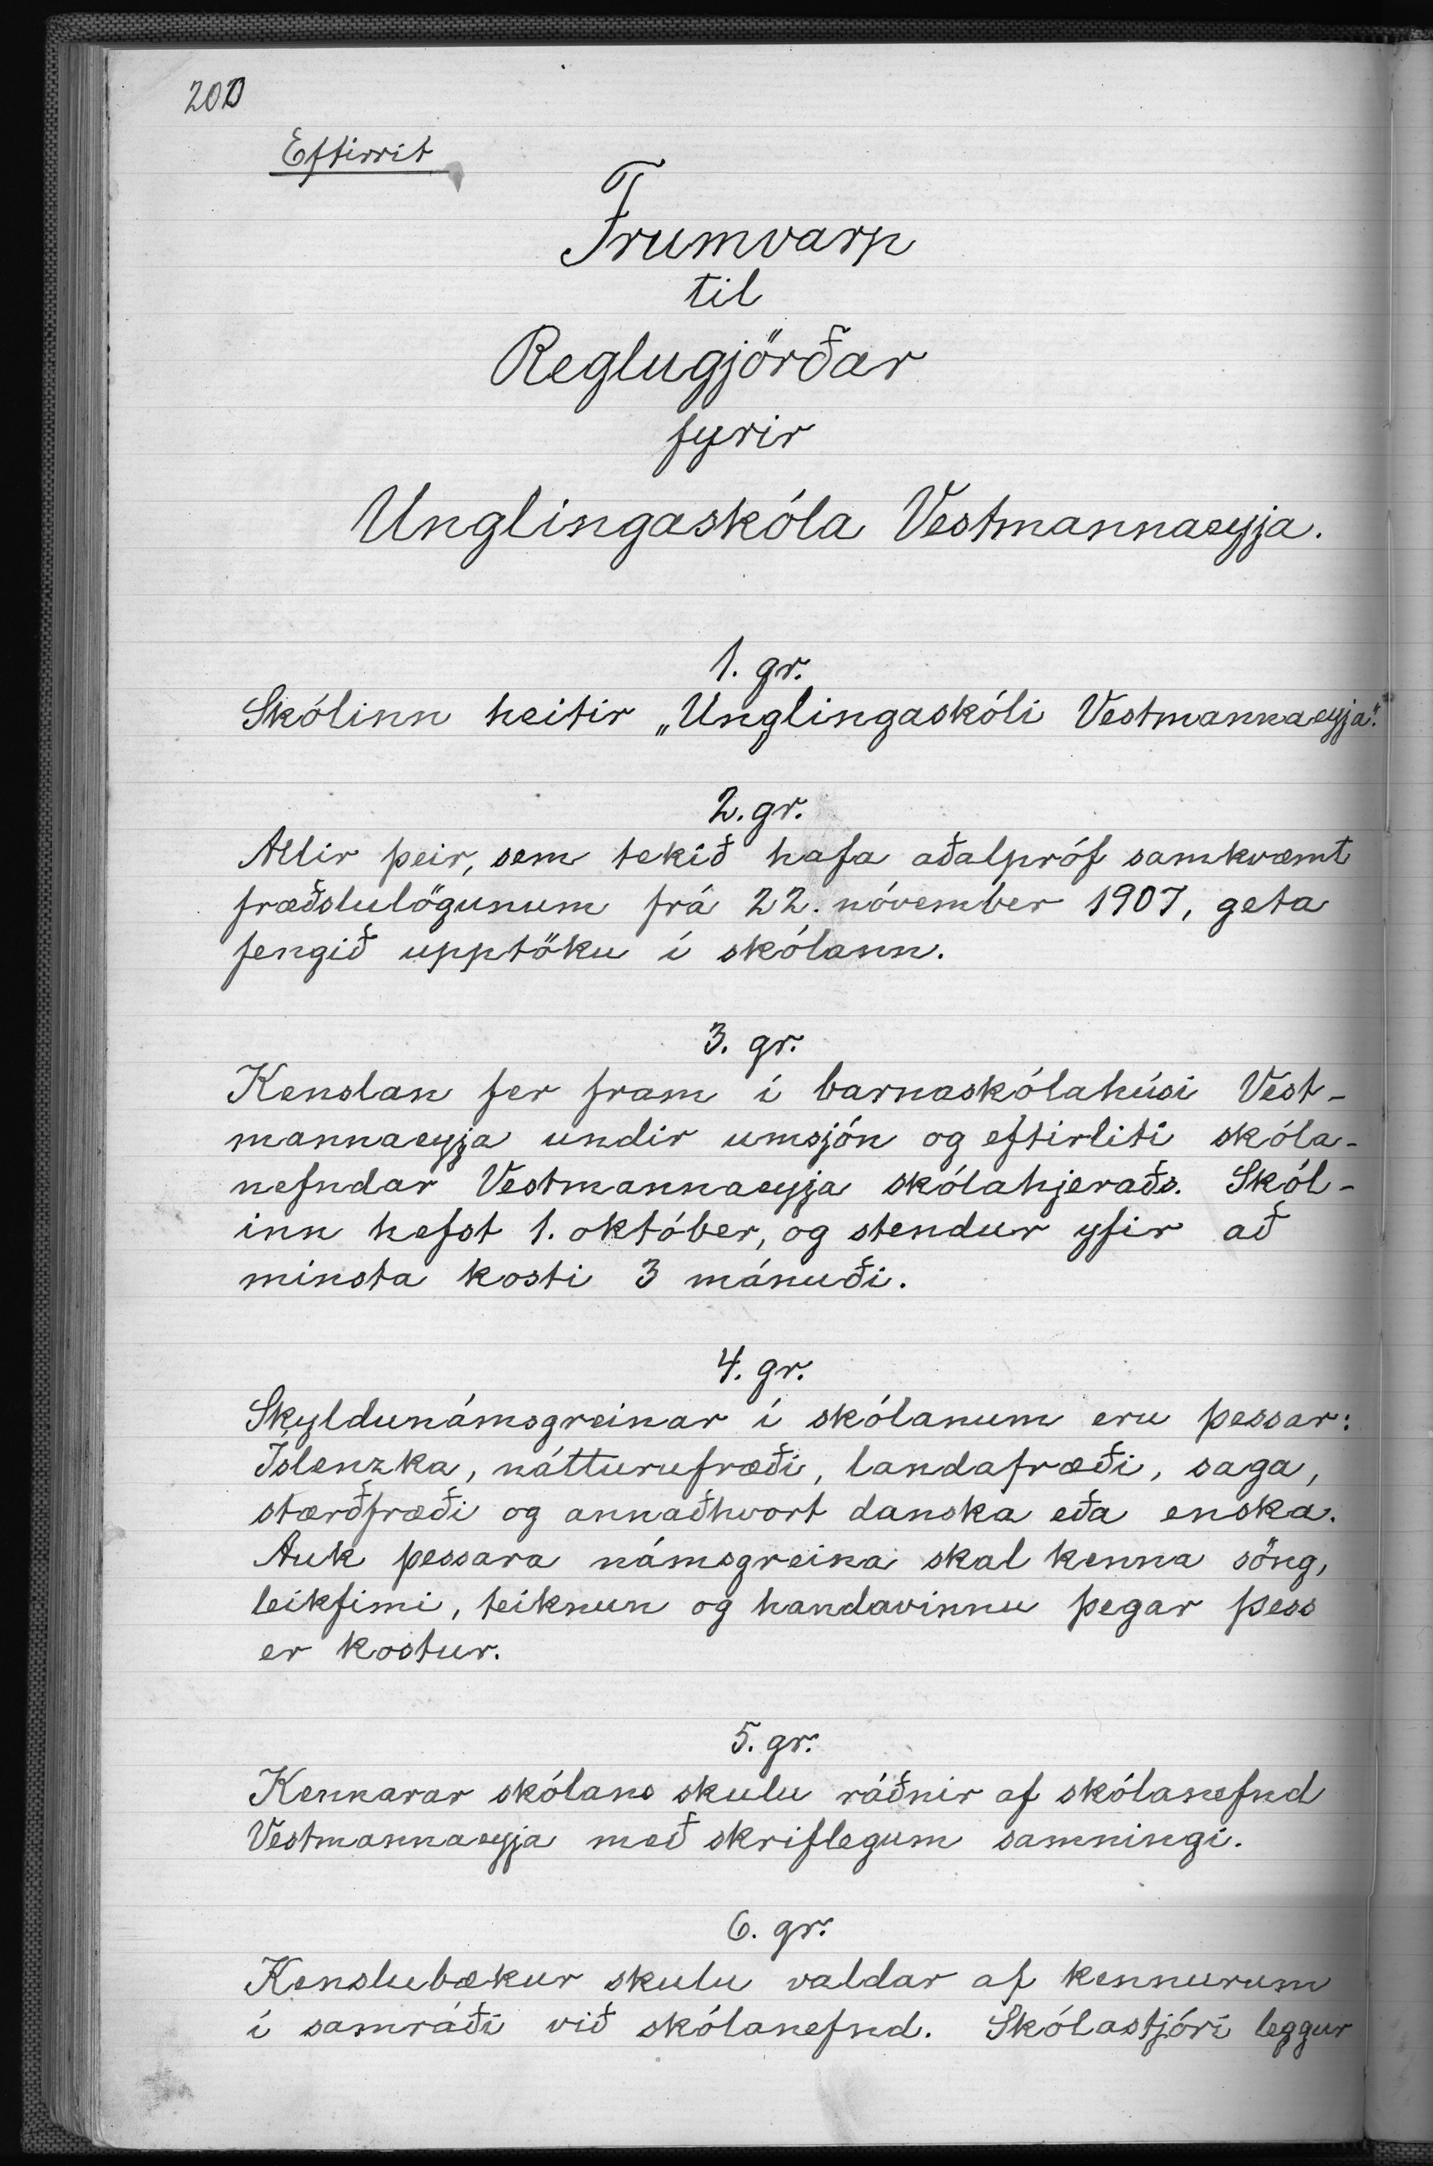 200
Eftirrit
Frumvarp
til
Reglugjörðar
fyrir
Unglingaskóla Vestmannaeyja.
1. gr.
Skólinn heitir „Unglingaskóli Vestmannaeyja“.
2. gr.
Allir þeir, sem tekið hafa aðalpróf samkvæmt
fræðslulögunum frá 22. nóvember 1907, geta
fengið upptöku í skólann.
3. gr.
Kenslan fer fram í barnaskólahúsi Vest-
mannaeyja undir umsjón og eftirliti skóla-
nefndar Vestmannaeyja skólahjeraðs. Skól-
inn hefst 1. október, og stendur yfir að
minsta kosti 3 mánuði.
4. gr.
Skyldunámsgreinar í skólanum eru þessar:
Íslenzka, nátturufræði, landafræði, saga,
stærðfræði og annaðhvort danska eða enska.
Auk þessara námsgreina skal kenna söng,
leikfimi, teiknun og handavinnu þegar þess
er kostur.
5. gr.
Kennarar skólans skulu ráðnir af skólanefnd
Vestmannaeyja með skriflegum samningi.
6. gr.
Kenslubækur skulu valdar af kennurum
í samráði við skólanefnd. Skólastjóri leggur